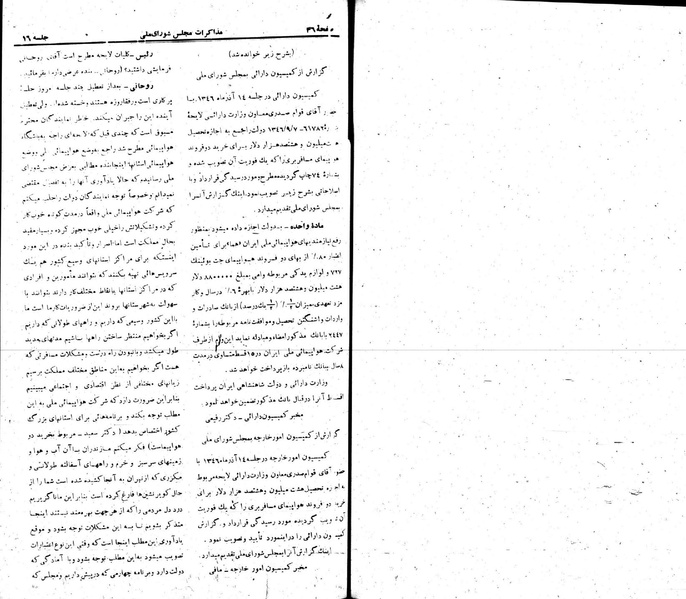 صفحهٔ ۳۶
مذاکرات مجلس شورای ملی
جلسه ۱۶
(بشرح زیر خوانده شد)
گزارش از کمیسیون دارائی بمجلس شورای ملی
کمیسیون دارائی در جلسه ۱۴ آذر ماه ۱۳۴۶ با
آقای قوام صدری معاون وزارت دارائی لایحهٔ
۶۱۷۸۶-۱۳۴۶/۹/۷ دولت راجع به اجازه تحصیل
میلیون و هشتصد هزار دلار برای خرید دو فروند
هواپیمای مسافربری را که یك فوریت آن تصویب شده و
بشمارهٔ ۷۴ چاپ گردیده مطرح و مورد رسیدگی قرار داد و با
اصلاحاتی بشرح زیر تصویب نمود. اینك گزارش آنرا
بمجلس شورای ملی تقدیم میدارد.
مادهٔ واحده – بدولت اجازه داده میشود بمنظور
رفع نیازمندیهای هواپیمائی ملی ایران «هما» برای تأمین
از بهای دو فروند هواپیمای جت بوئینگ
۷۲۷ و لوازم یدکی مربوطه وامی بمبلغ ۸۸۰۰۰۰۰ دلار
هشت میلیون و هشتصد هزار دلار با بهره ۶٪ در سال و کار
مزد تعهدی بمیزان (یك درصد) از بانك صادرات و
واردات واشنگتن تحصیل و موافقت نامه مربوطه را بشمارهٔ
۲۴۴۷ با بانك مذکور امضاء و مبادله نماید این وام از طرف
شرکت هواپیمائی ملی ایران در قسط متساوی در مدت
سال ببانك نامبرده باز پرداخت خواهد شد.
وزارت دارائی و دولت شاهنشاهی ایران پرداخت
اقساط آنرا در قبال بانك مذکور تضمین خواهد نمود.
مخبر کمیسیون دارائی – دکتر رفیعی
گزارش از کمیسیون امور خارجه بمجلس شورای ملی
کمیسیون امور خارجه در جلسه ۱۴ آذر ماه ۱۳۴۶ با
حضور آقای قوام صدری معاون وزارت دارائی لایحه مربوط
اجازه تحصیل هشت میلیون و هشتصد هزار دلار برای
خرید دو فروند هواپیمای مسافربری را که یك فوریت
تصویب گردیده مورد رسیدگی قرار داد و گزارش
کمیسیون دارائی را در این مورد تأیید و تصویب نمود.
اینك گزارش آنرا بمجلس شورای ملی تقدیم میدارد.
مخبر کمیسیون امور خارجه – مافی
رئیس – کلیات لایحه مطرح است آقای روحانی
فرمایشی داشتید؟ (روحانی – بنده عرض دارم) بفرمائید.
روحانی – بعد از تعطیل چند جلسه امروز جلسه
پر کاری است و رفقا روزه هستند و خسته شده‌اند.. ولی تعطیل
آینده این را جبران میکند. خاطر نمایندگان محترم
مسبوق است که چندی قبل که لایحه‌ای راجع به باشگاه
هواپیمائی مطرح شد راجع به وضع هواپیمائی ملی و وضع
هواپیمائی استانها اینجانب مطالبی بعرض مجلس شورای
ملی رسانیدم که حالا یادآوری آنها را به تفصیل مقتضی
نمیدانم و خصوصاً توجه نمایندگان دولت را جلب میکنم
که شرکت هواپیمائی ملی واقعاً در مدت کوتاه خوب کار
کرده و تشکیلاتش را خیلی خوب مجهز کرده و بسیار مفید
بحال مملکت است اما اصرار و تأکید بنده در این مورد
اینستکه برای مراکز استانهای وسیع کشور هم یك
سرویس‌هائی تهیه بکنند که بتوانند مأمورین و افرادی
که در مراکز استانها یا نقاط مختلف کار دارند بتوانند با
سهولت به شهرستانها بروند این از ضروریات کار ما است ما
با این کشور وسیعی که داریم و راههای طولانی که داریم
اگر بخواهیم منتظر ساختن راهها بباشیم مدتهای مدید
طول میکشد و با نبودن راه درست و مشکلات مسافرتی که
هست اگر بخواهیم به این مناطق مختلف مملکت برسیم
زیانهای مختلفی از نظر اقتصادی و اجتماعی میبینیم
بنابر این ضرورت دارد که شرکت هواپیمائی ملی به این
مطلب توجه بکند و برنامه‌هائی برای استانهای بزرگ
کشور اختصاص بدهد (دکتر سعید – مربوط بخرید دو
هواپیماست) فکر میکنم مازندران با آن آب و هوا و
زمینهای سرسبز و خرم و راههای آسفالته طولانی و
مکرری که از تهران به آنجا کشیده شده است شما را از
حال کویر نشین‌ها فارغ کرده است بنابر این ما ناگزیریم
درد دل مردمی را که از هر جهت بهره‌مند نیستند اینجا
متذکر بشویم تا به این مشکلات توجه بشود و موقع
یادآوری این مطلب اینجا است که وقتی این نوع اعتبارات
تصویب میشود به این مطلب توجه بشود و با آمادگی که
دولت دارد و برنامه چهارمی که در پیش داریم و مجلس که